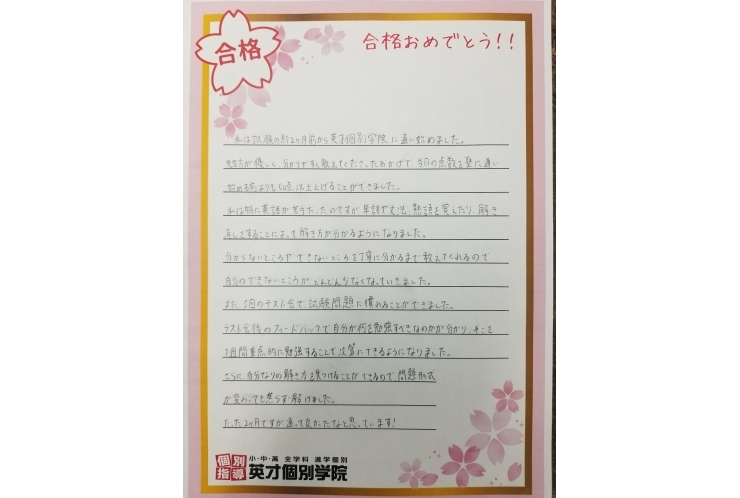 合格
合格おめでとう!!
私は試験の約2ヶ月前から英才個別学院に通い始めました。
先生方が優しく、分かりやすく教えてくださったおかげで、当日の点数を塾に通い
始める前よりも50点以上上げることができました。
私は特に英語が苦手だったのですが単語や文法、熟語を覚えたり、解き
直しをすることによって解き方が分かるようになりました。
分からないところやできないところを丁寧に分かるまで教えてくれるので
自分のできないところがどんどん少なくなっていきました。
また、5回のテスト会で試験問題に慣れることができました。
テスト会後のフィードバックで自分が何を勉強すべきなのかが分かり、そこを
1週間重点的に勉強することで次第にできるようになりました。
さらに自分なりの解き方を見つけることができるので、問題形式
が変わっても焦らず解けました。
たった2ヶ月ですが通って良かったなと思っています!
個別指導
小・中・高 全学科 進学個別
英才個別学院